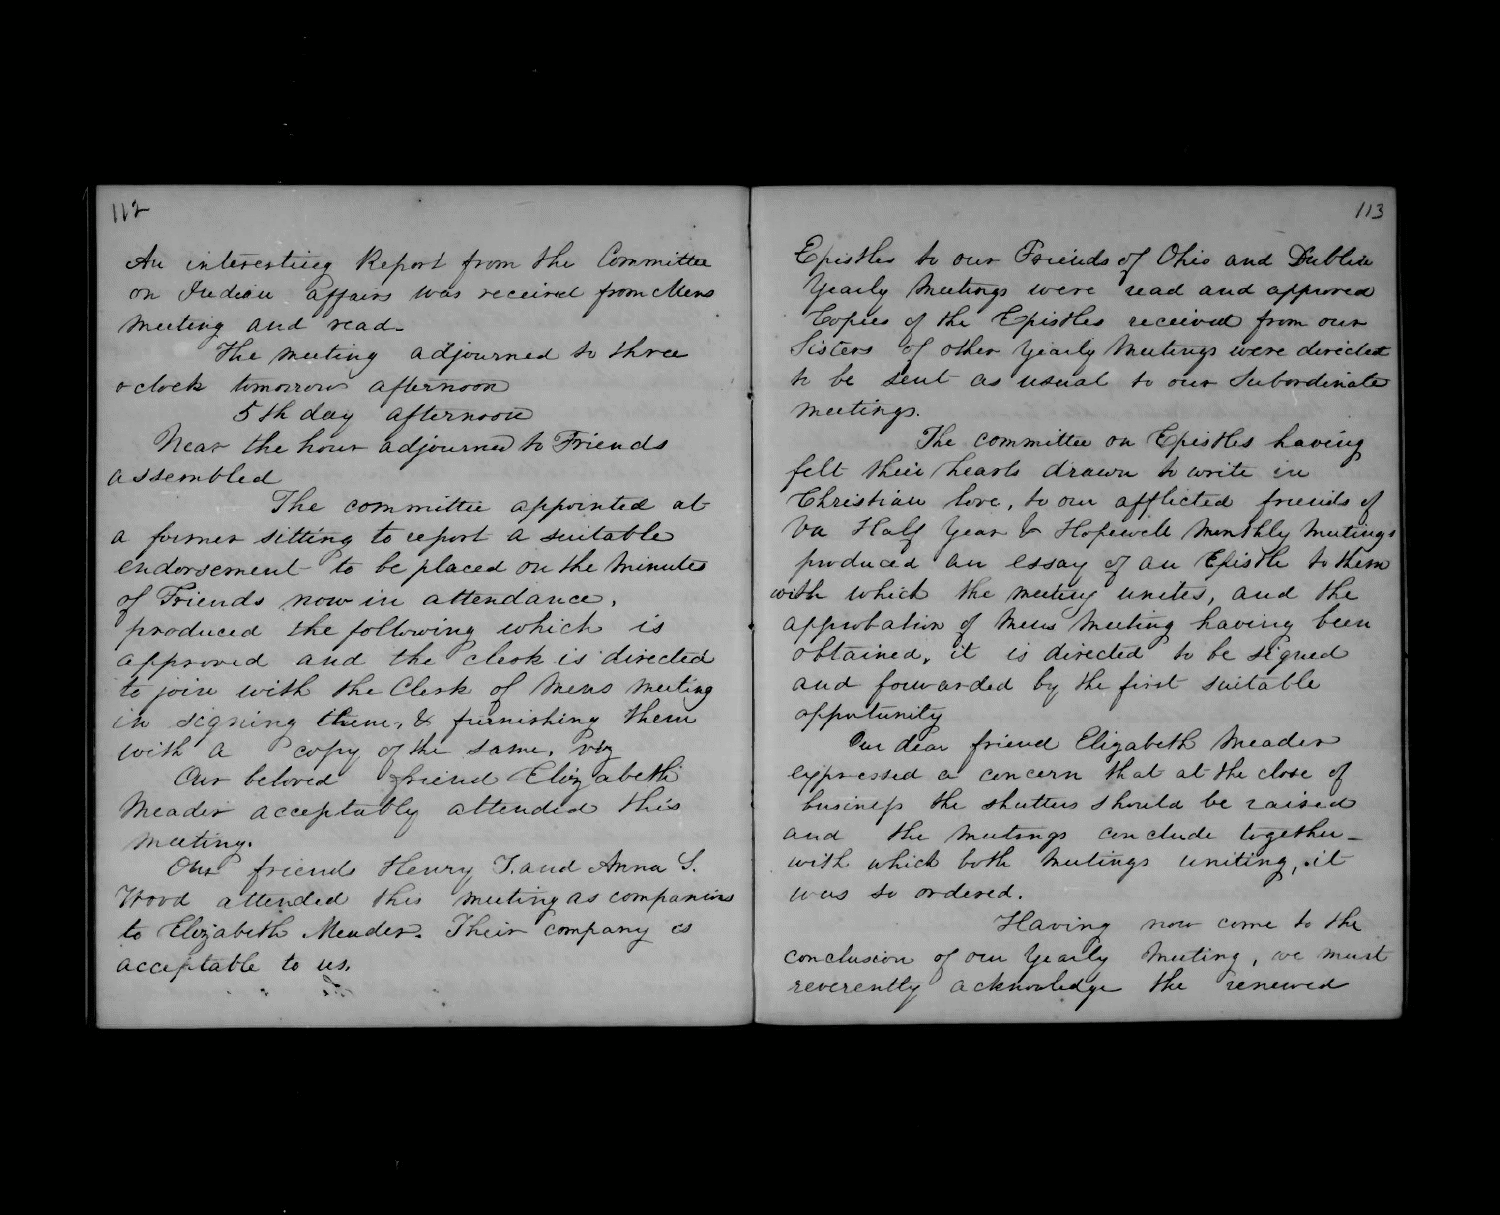 112
An interesting Report from the Committee
on Indian affairs was received from Mens
meeting and read.
The meeting adjourned to three
oclock tomorrow afternoon
5th day afternoon
Near the hour adjourned to Friends
assembled
The committee appointed at
a former sitting to report a suitable
endorsement to be placed on the minutes
of Friends now in attendance,
produced the following which is
approved and the clerk is directed
to join with the Clerk of Mens meeting
in signing them, & furnishing them
with a copy of the same, viz
Our beloved friend Elizabeth
Meader acceptably attended this
meeting.
Our friends Henry T. and Anna S.
Wood attended this meeting as companions
to Elizabeth Meader. Their company is
acceptable to us.
113
Epistles to our Friends of Ohio and Dublin
Yearly Meetings were read and approved
Copies of the Epistles received from our
Sisters of other Yearly Meetings were directed
to be sent as usual to our Subordinate
meetings.
The committee on Epistles having
felt their hearts drawn to write in
Christian love, to our afflicted friends of
Va Half Year & Hopewell Monthly Meetings
produced an essay of an Epistle to them
with which the meeting unites, and the
approbation of Mens Meeting having been
obtained, it is directed to be signed
and forwarded by the first suitable
oppotunity
Our dear friend Elizabeth Meader
expressed a concern that at the close of
business the shutters should be raised
and the meetings conclude together—
with which both Meetings uniting, it
was so ordered.
Having now come to the
conclusion of our Yearly Meeting, we must
reverently acknowledge the renewed